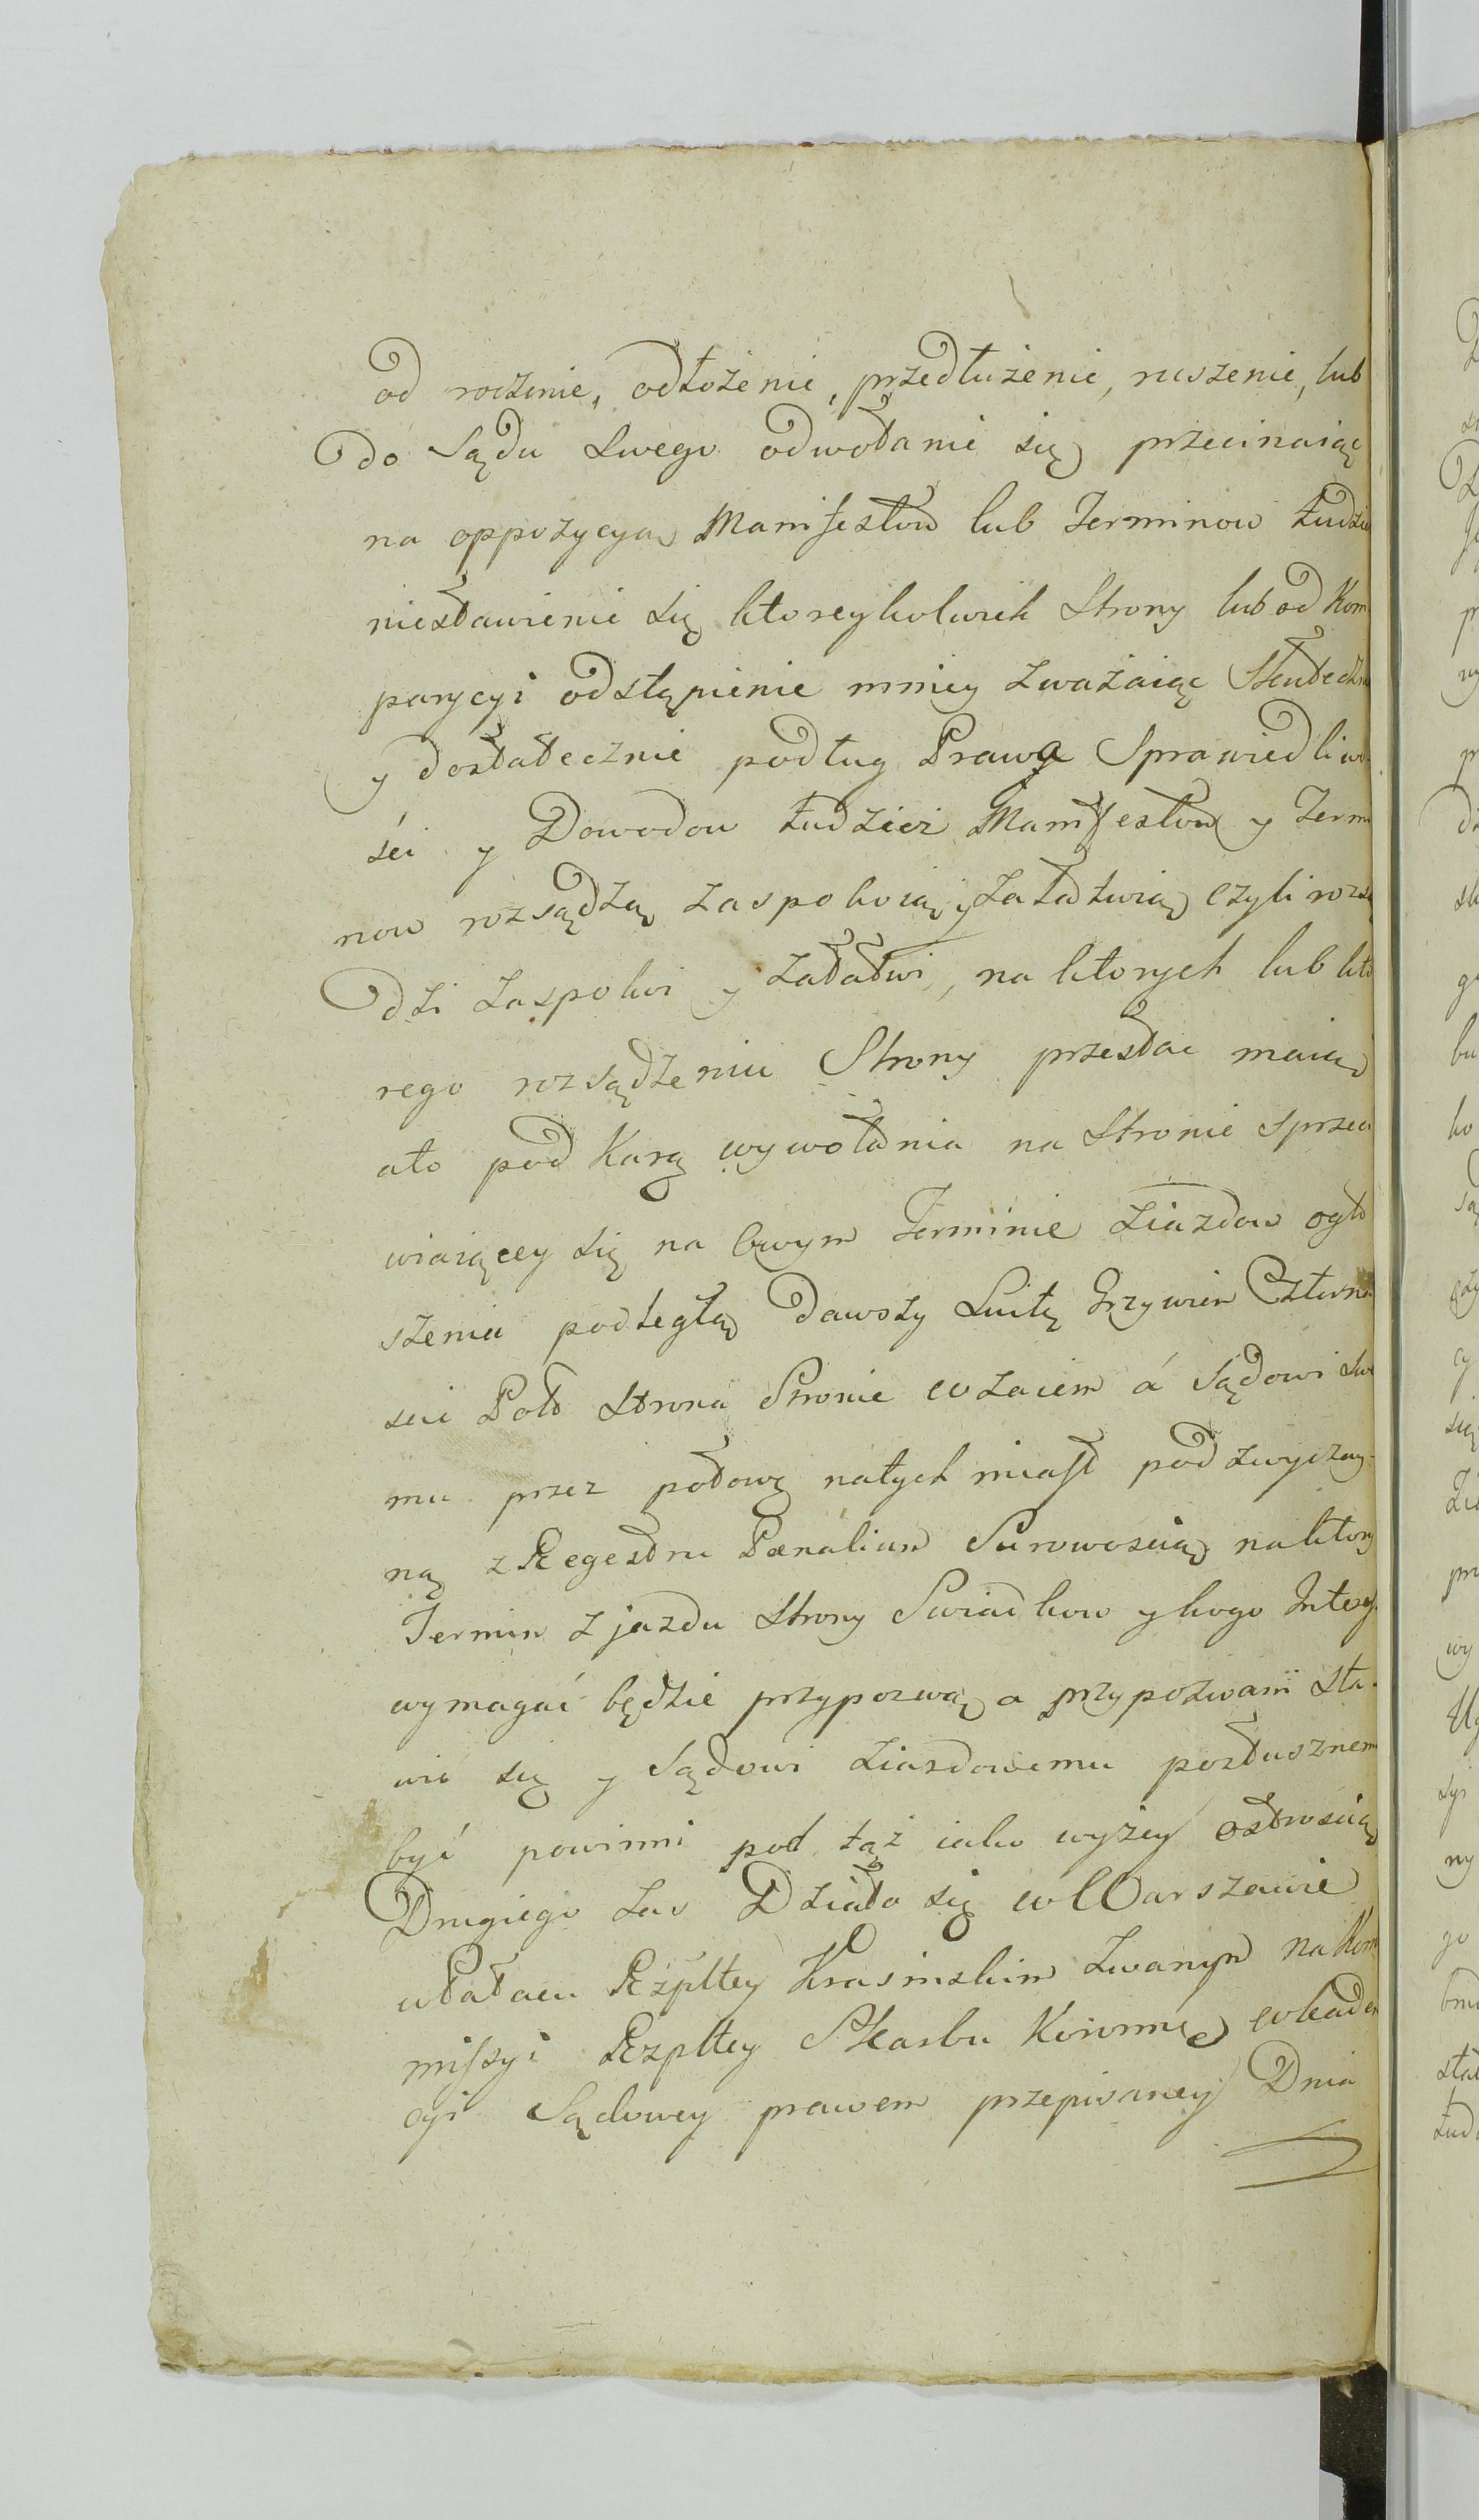 od roczenie, odłożenie, przedłużenie, ruszenie, lub
do Sądu Swego odwołanie się przecinaiąc
na oppozycyą Manifestow lub Terminow tudzie
niestawienie się ktoreykolwiek Strony lub od Kom
parycyi odstąpienie mniey zważaiąc Skutecżn
y dostatecznie podług Prawa Sprawiedliwo
ści y Dowodow tudzież Manifestow y Termi
now rozsądzą zaspokoią y załatwią czyli rozsą
dzi zaspokoi y załatwi, na ktorych lub kto
rego rozsądzeniu Strony przestać maią
ato pod Karą wywołania na Stronie sprzeci
wiaiącey się na Owym Terminie Ziazdow ogło
szenia podległą dawszy Suitę Grzywien Czterna
scie Polˢ Strona Stronie wzaiem á Sądowi Swe
mu przez połowę natych miast pod zwyczay-
ną z Regestru Pænalium Surowoscią na ktory
Termin zjazdu Strony Swiadkow y kogo Interess
wymagać będzie przypozwą a przypozwani sta-
wić się y Sądowi Ziazdowemu posłusznemi
być powinni pod táż iako wyżey ostroscią
Drugiego zas Działo się w Warszawie
w Pałacu Rzpltey Krasinskim zwanym na Kom
missyi Rzpltey Skarbu Koronne wkaden
cyi Sądowey prawem przepisaney Dnia